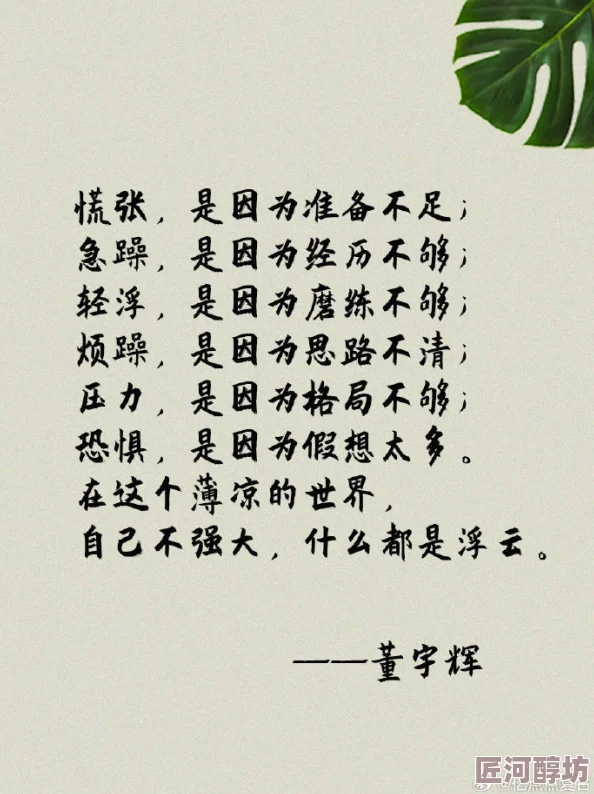 慌张，是因为准备不足；
急躁，是因为经历不够；
轻浮，是因为磨练不够；
烦躁，是因为思路不清；
压力，是因为格局不够；
恐惧，是因为假想太多。
在这个薄凉的世界，
自己不强大，什么都是浮云。
——董宇辉
匠河醇坊